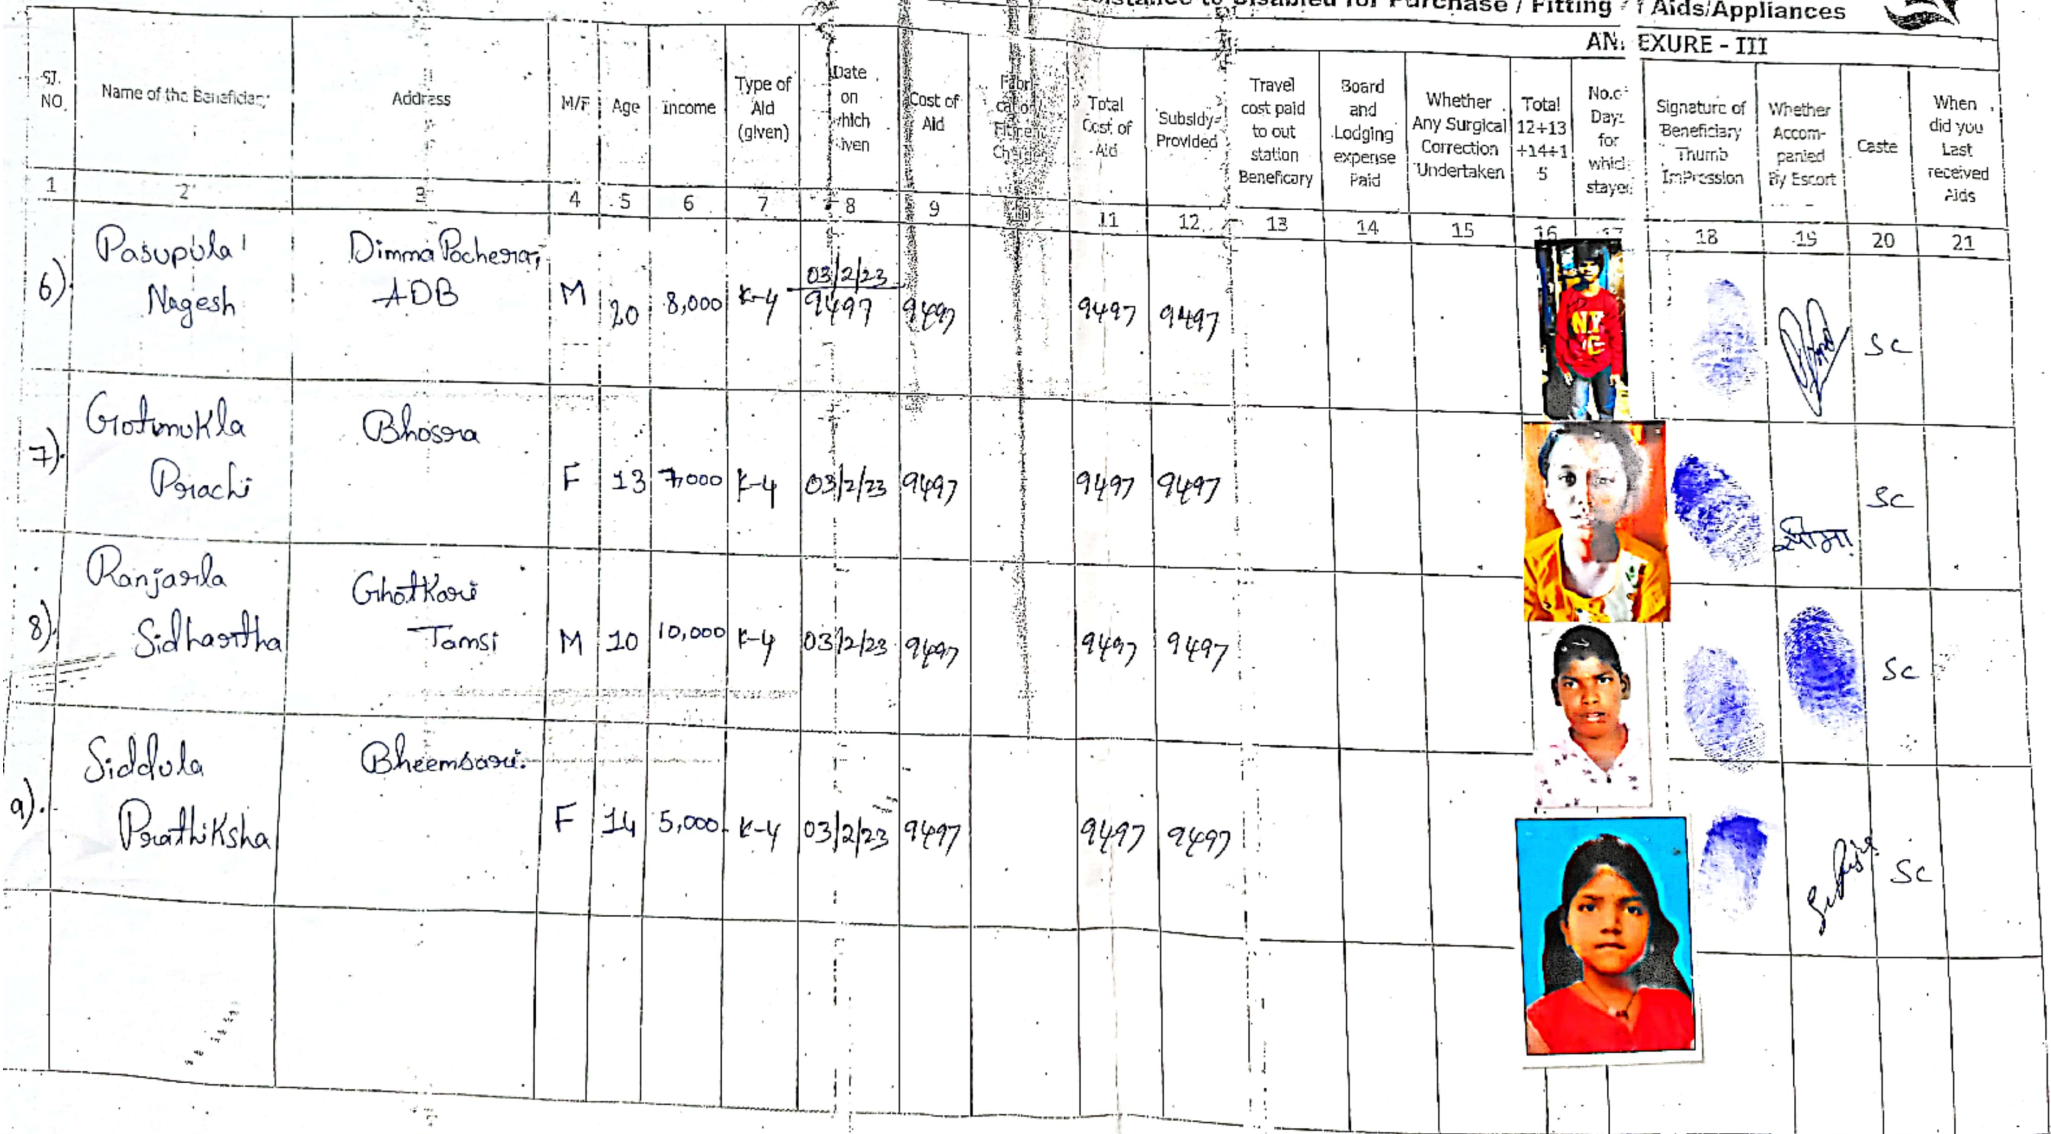 Disabled for Purchase / Fitting Aids/Appliances
ANNEXURE - III
SI. NO. Name of the Beneficiary Address M/F Age income Type of Aid (given) Date on which given Cost of Aid Total Cost of Aid Subsidy Provided Travel cost paid to out station Beneficary Board and Lodging expense Paid Whether Any Surgical Correction Undertaken Total 12+13 +14+1 5 No.of Days for which stayed Signature of Beneficiary Thumb ImPression Whether Accom- panied By Escort Caste When did you Last received Aids
1 2 3 4 5 6 7 8 9 10 11 12 13 14 15 16 17 18 19 20 21
6). Pasupula Nagesh Dimma Pocherai, ADB M 20 8,000 K-4 03/2/23 9497 9497 9497 9497 SC
NY C
7). Gotimukla Prachi Bhosra F 13 7,000 K-4 03/2/23 9497 9497 9497 SC
8). Ranjarla Sidhartha Ghotkari Tamsi M 10 10,000 K-4 03/2/23 9497 9497 9497 SC
9). Siddula Prathiksha Bheemsari. F 14 5,000 K-4 03/2/23 9497 9497 9497 SC